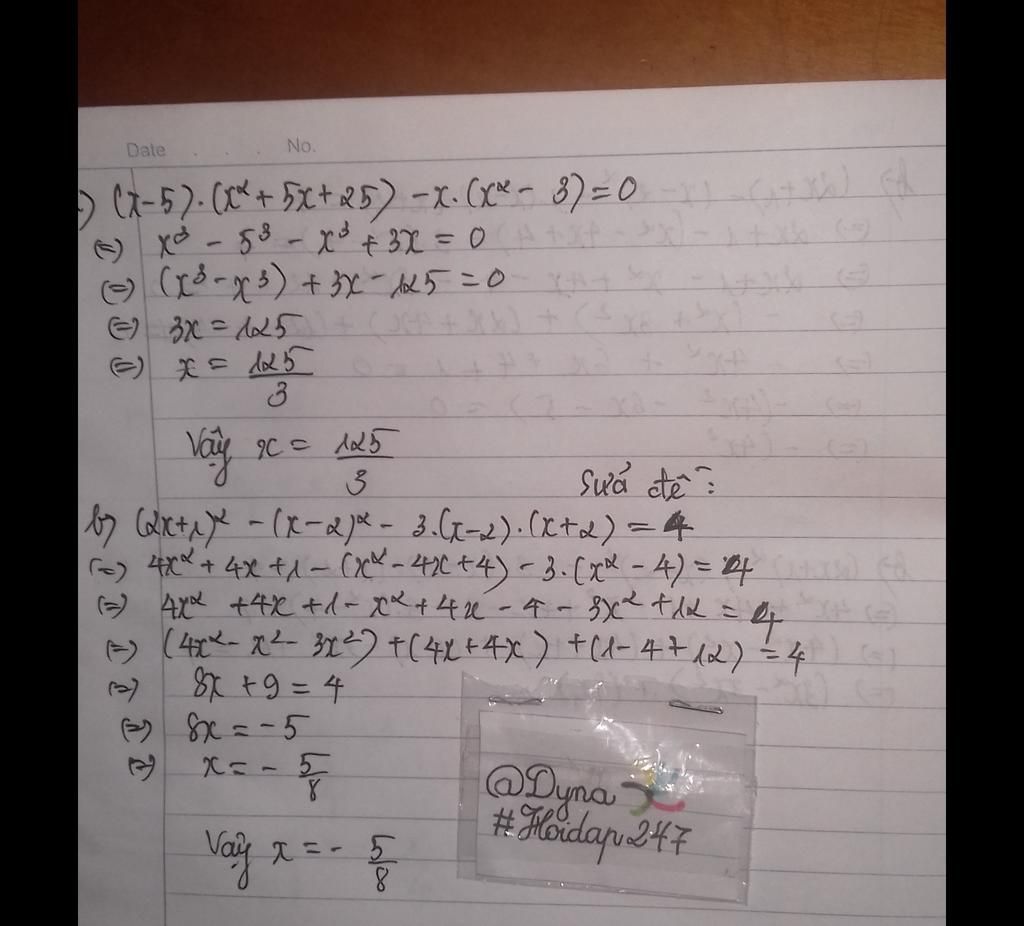 Date . . . No.
) (x-5).(x²+5x+25) -x.(x²- 3)=0
(=) x³ - 5³ - x³ + 3x = 0
(=) (x³-x³) + 3x - 125 = 0
(=) 3x = 125
(=) x = 125/3
Vậy x = 125/3
Sửa đề:
b) (2x+1)² -(x-2)² - 3.(x-2).(x+2) = 4
(=) 4x² + 4x +1 - (x² - 4x +4) - 3.(x² - 4) = 4
(=) 4x² +4x +1- x² + 4x - 4 - 3x² +12 = 4
(=) (4x² - x² - 3x²) +(4x+4x) +(1-4+12) = 4
(=) 8x + 9 = 4
(=) 8x = -5
(=) x = - 5/8
Vậy x = - 5/8
@Dyna
#Hoidap247